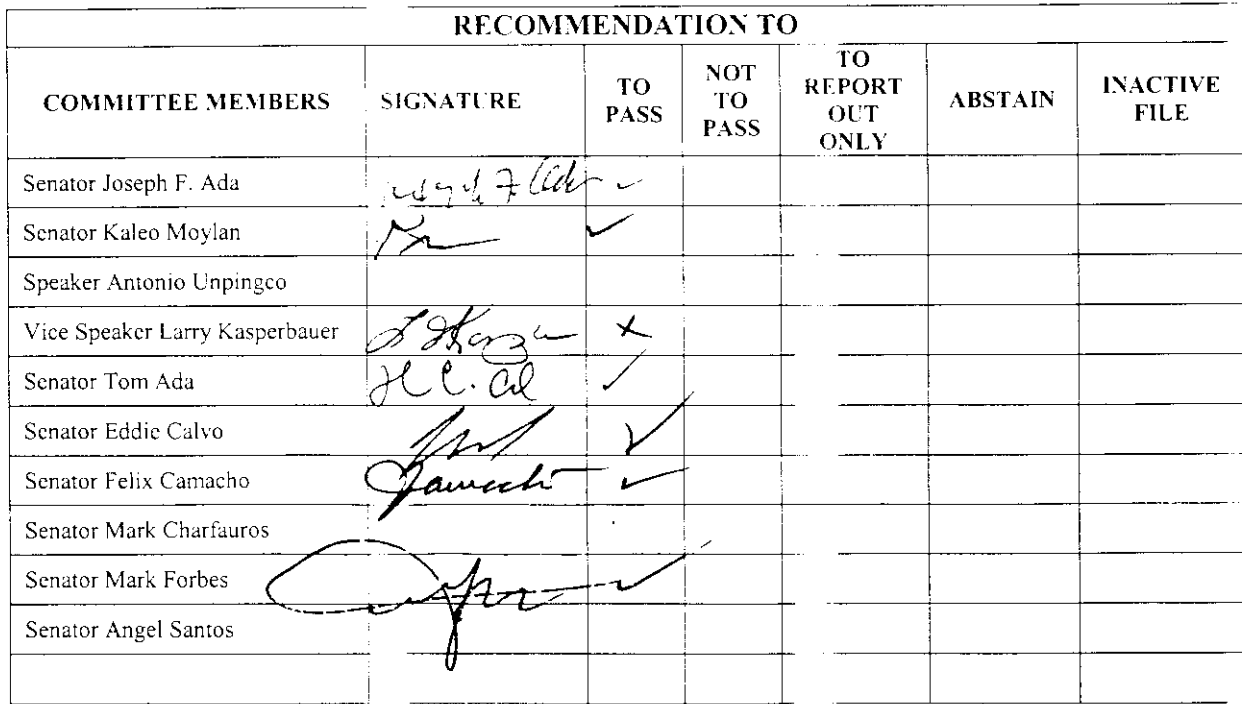 RECOMMENDATION TO
COMMITTEE MEMBERS SIGNATURE TO PASS NOT TO PASS TO REPORT OUT ONLY ABSTAIN INACTIVE FILE
Senator Joseph F. Ada ✓
Senator Kaleo Moylan ✓
Speaker Antonio Unpingco
Vice Speaker Larry Kasperbauer x
Senator Tom Ada ✓
Senator Eddie Calvo ✓
Senator Felix Camacho Camacho ✓
Senator Mark Charfauros
Senator Mark Forbes ✓
Senator Angel Santos